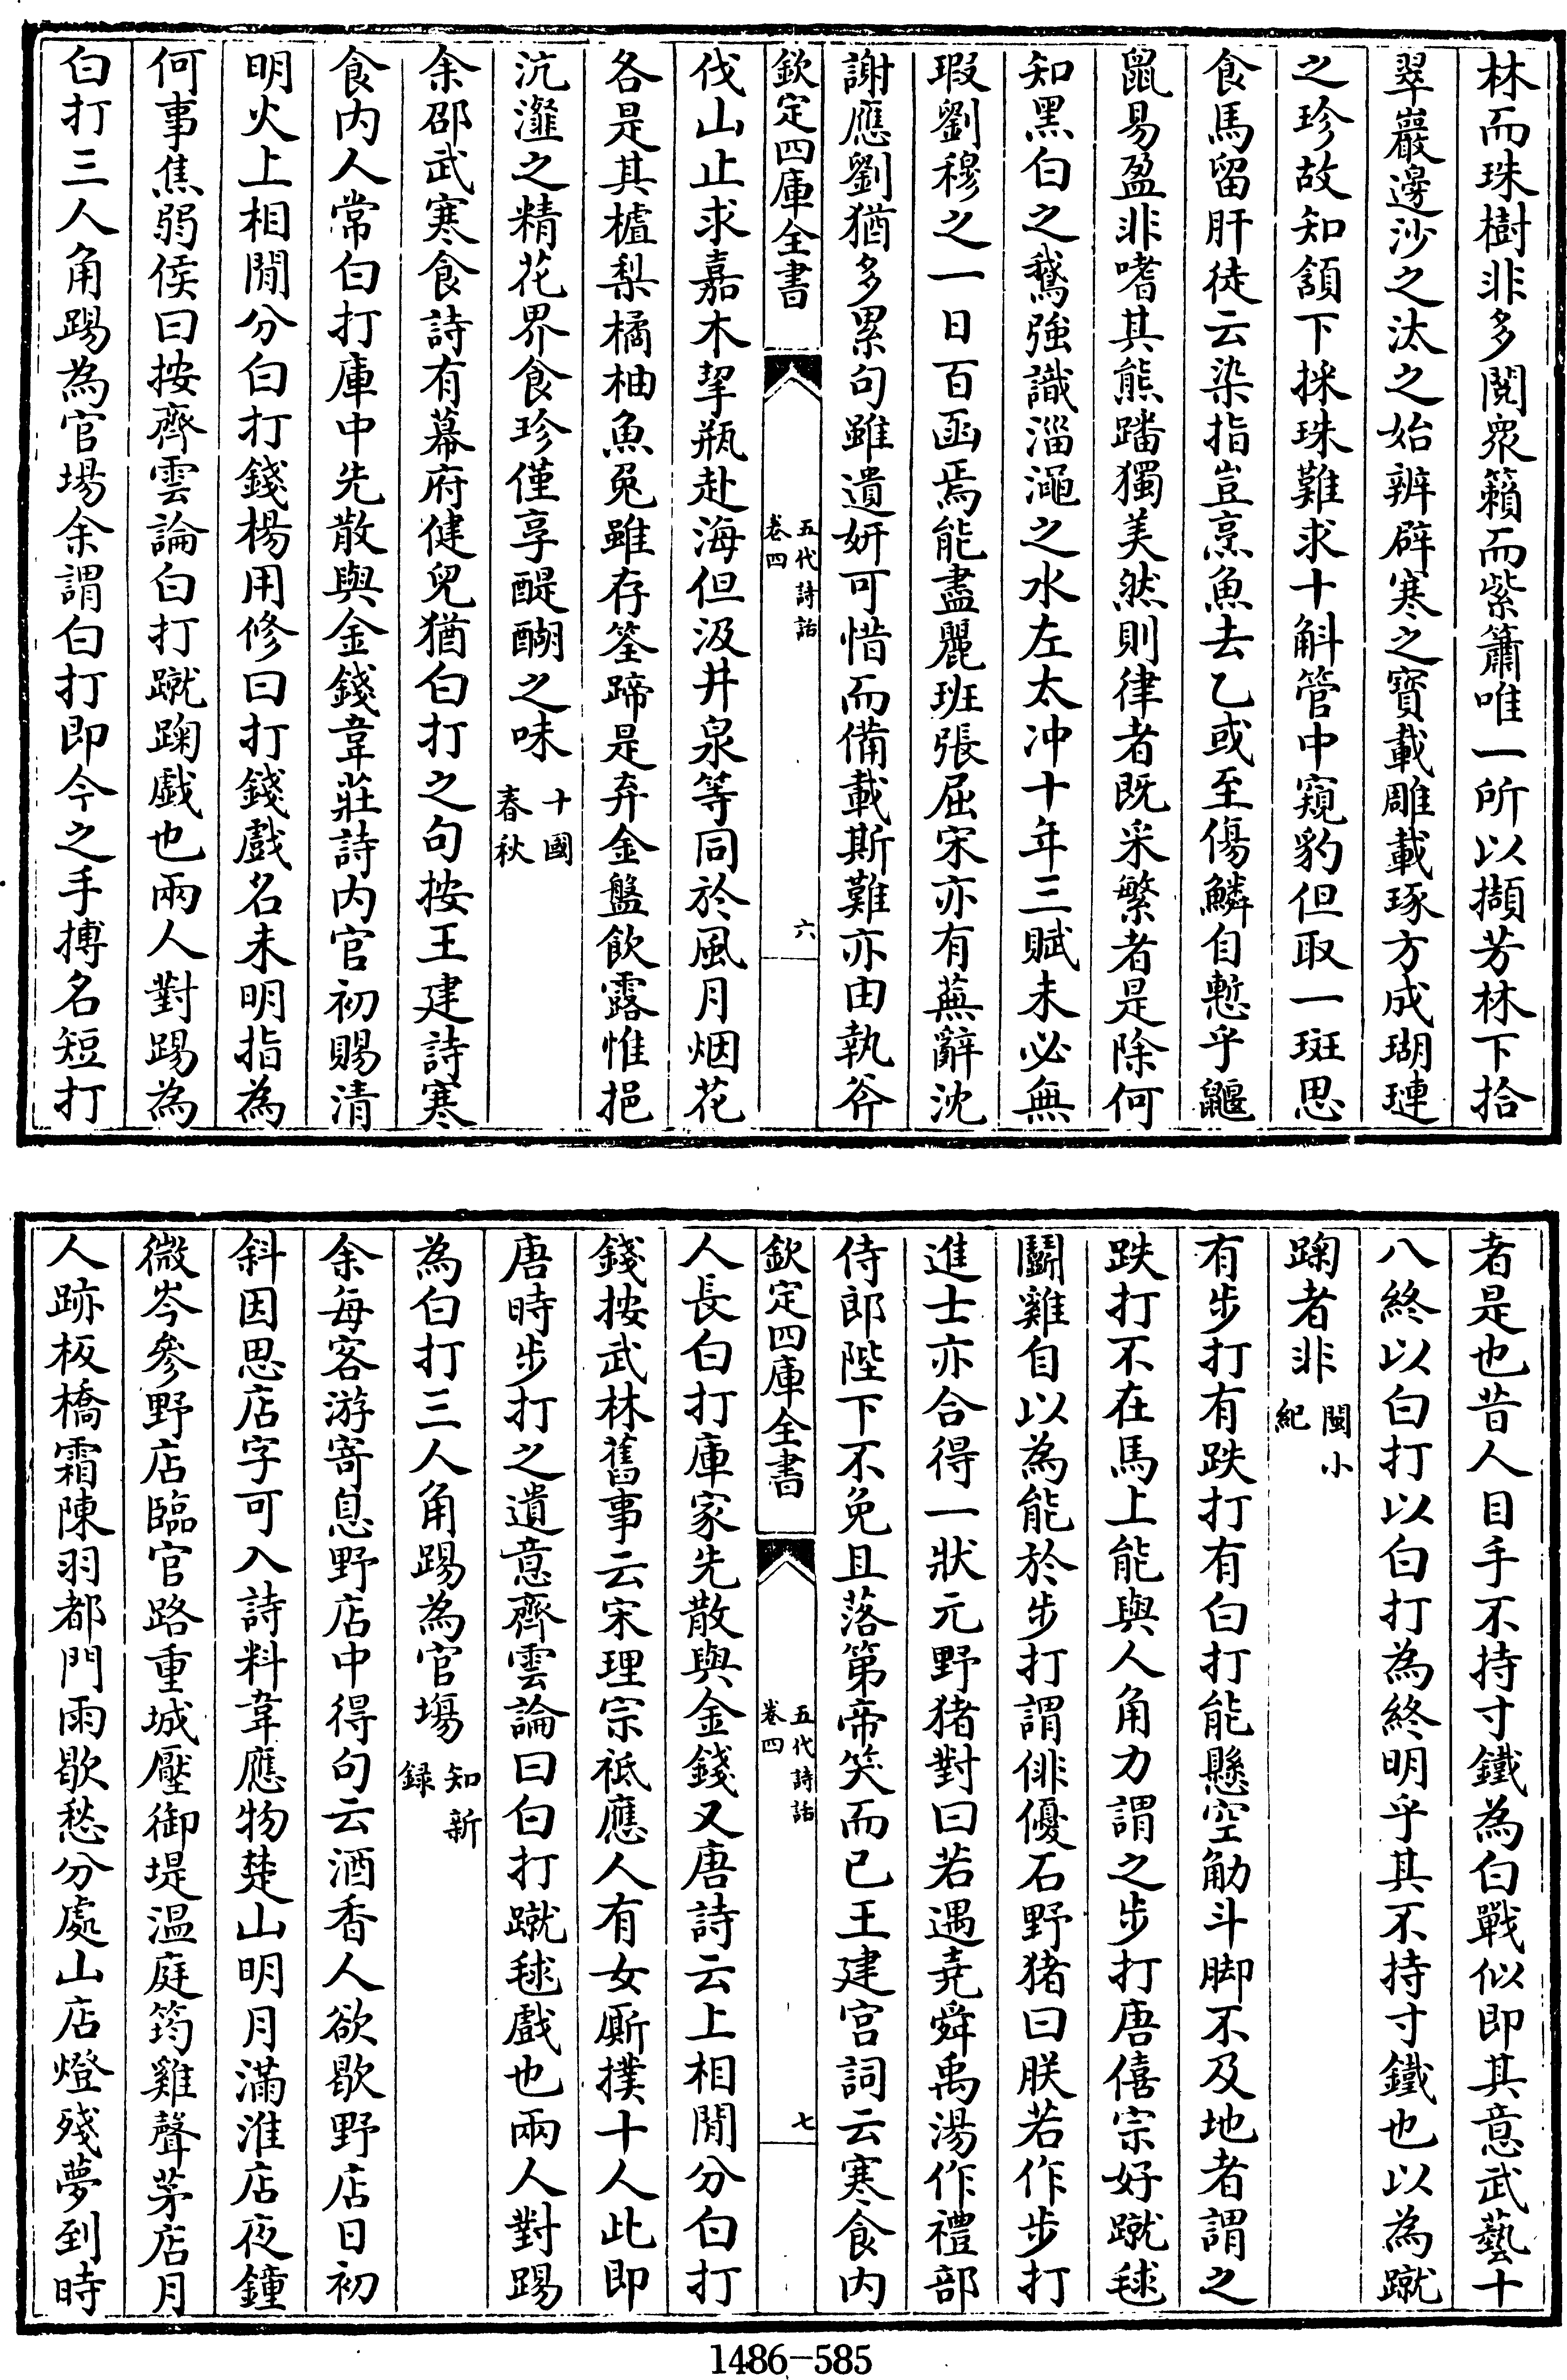 林而珠樹非多閱衆籟而紫簫唯一所以擷芳林下拾
翠巖邊沙之汰之始辨辟寒之寶載雕載琢方成瑚璉
之珍故知頷下採珠難求十斛管中窺豹但取一斑思
食馬留肝徒云染指豈烹魚去乙或至傷鱗自慙乎鼴
鼠易盈非嗜其熊蹯獨美然則律者既采繁者是除何
知黑白之鵞強識淄澠之水左太冲十年三賦未必無
瑕劉穆之一日百函焉能盡麗班張屈宋亦有蕪辭沈
謝應劉猶多累句雖遺妍可惜而備載斯難亦由執斧
欽定四庫全書
五代詩話
卷四
六
伐山止求嘉木挈瓶赴海但汲井泉等同於風月烟花
各是其樝梨橘柚魚兔雖存筌蹄是弃金盤飲露惟挹
沆瀣之精花界食珍僅享醍醐之味十國
春秋
余邵武寒食詩有幕府健兒猶白打之句按王建詩寒
食内人常白打庫中先散與金錢韋莊詩内官初賜清
明火上相閒分白打錢楊用修曰打錢戲名未明指為
何事焦弱侯曰按齊雲論白打蹴踘戲也兩人對踢為
白打三人角踢為官場余謂白打即今之手搏名短打
者是也昔人目手不持寸鐵為白戰似即其意武藝十
八終以白打以白打為終明乎其不持寸鐵也以為蹴
踘者非閩小
紀
有步打有跌打有白打能懸空觔斗脚不及地者謂之
跌打不在馬上能與人角力謂之步打唐僖宗好蹴毬
鬭雞自以為能於步打謂俳優石野猪曰朕若作步打
進士亦合得一狀元野猪對曰若遇堯舜禹湯作禮部
侍郎陛下不免且落第帝笑而已王建宫詞云寒食内
欽定四庫全書
五代詩話
卷四
七
人長白打庫家先散與金錢又唐詩云上相閒分白打
錢按武林舊事云宋理宗祗應人有女厮撲十人此即
唐時步打之遺意齊雲論曰白打蹴毬戲也兩人對踢
為白打三人角踢為官塲知新
録
余每客游寄息野店中得句云酒香人欲歇野店日初
斜因思店字可入詩料韋應物楚山明月滿淮店夜鐘
微岑參野店臨官路重城壓御堤温庭筠雞聲茅店月
人跡板橋霜陳羽都門雨歇愁分處山店燈殘夢到時
1486-585